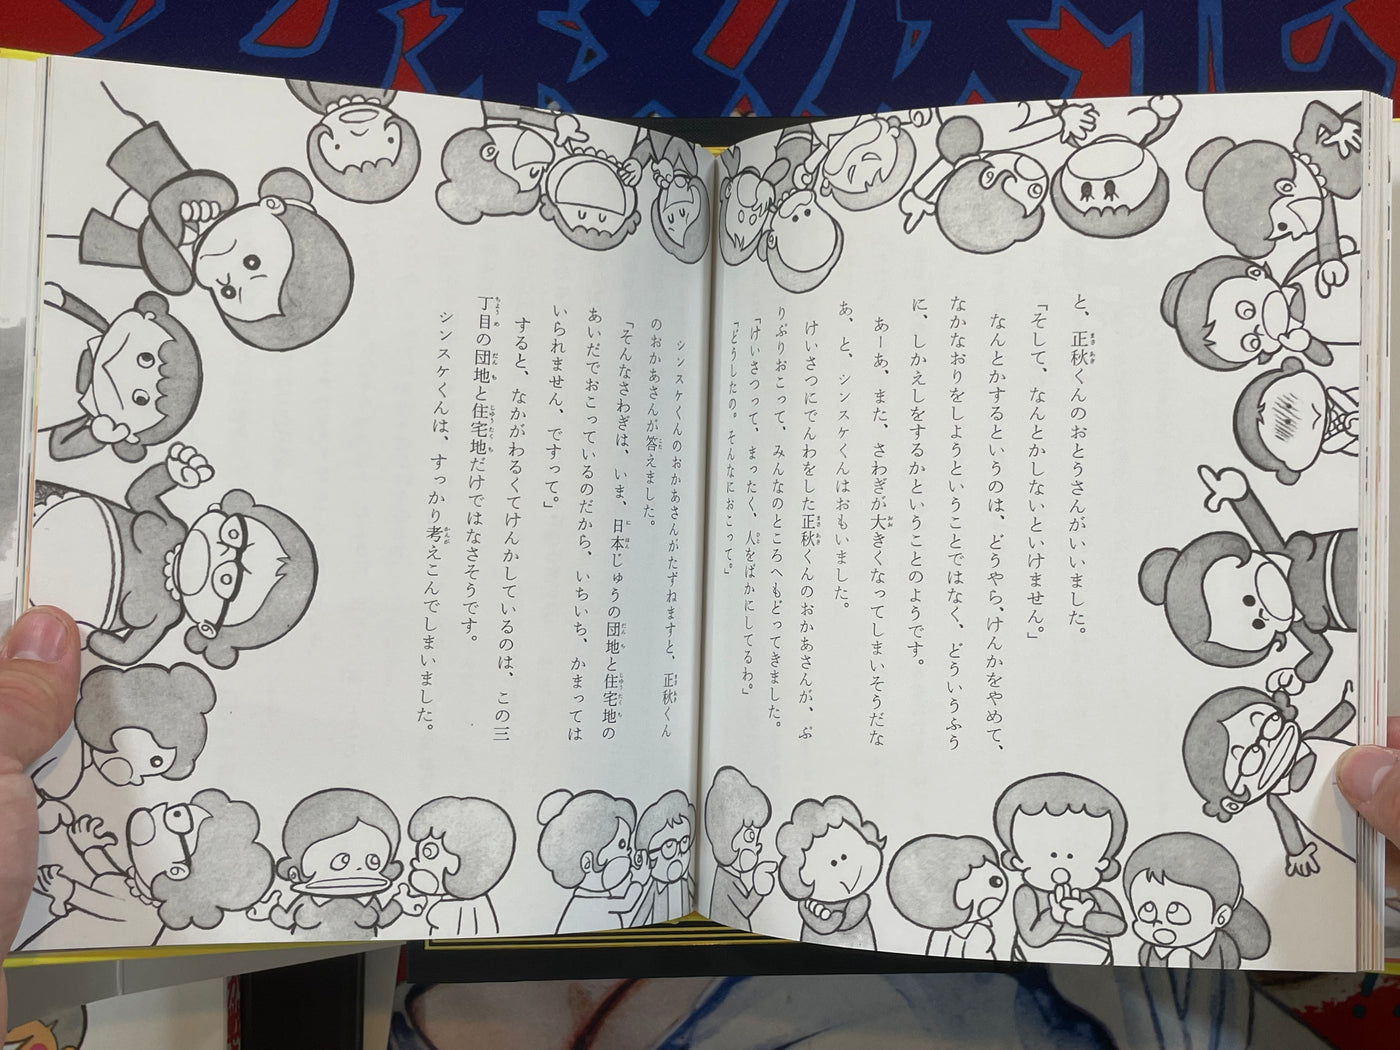 と、正秋くんのおとうさんがいいました。
「そして、なんとかしないといけません。」
なんとかするというのは、どうやら、けんかをやめて、
なかなおりをしようということではなく、どういうふう
に、しかえしをするかということのようです。
あーあ、また、さわぎが大きくなってしまいそうだな
あ、と、シンスケくんはおもいました。
けいさつにでんわをした正秋くんのおかあさんが、ぷ
りぷりおこって、みんなのところへもどってきました。
「けいさつって、まったく、人をばかにしてるわ。」
「どうしたの。そんなにおこって。」
シンスケくんのおかあさんがたずねますと、正秋くん
のおかあさんが答えました。
「そんなさわぎは、いま、日本じゅうの団地と住宅地の
あいだでおこっているのだから、いちいち、かまっては
いられません、ですって。」
すると、なかがわるくてけんかしているのは、この三
丁目の団地と住宅地だけではなさそうです。
シンスケくんは、すっかり考えこんでしまいました。